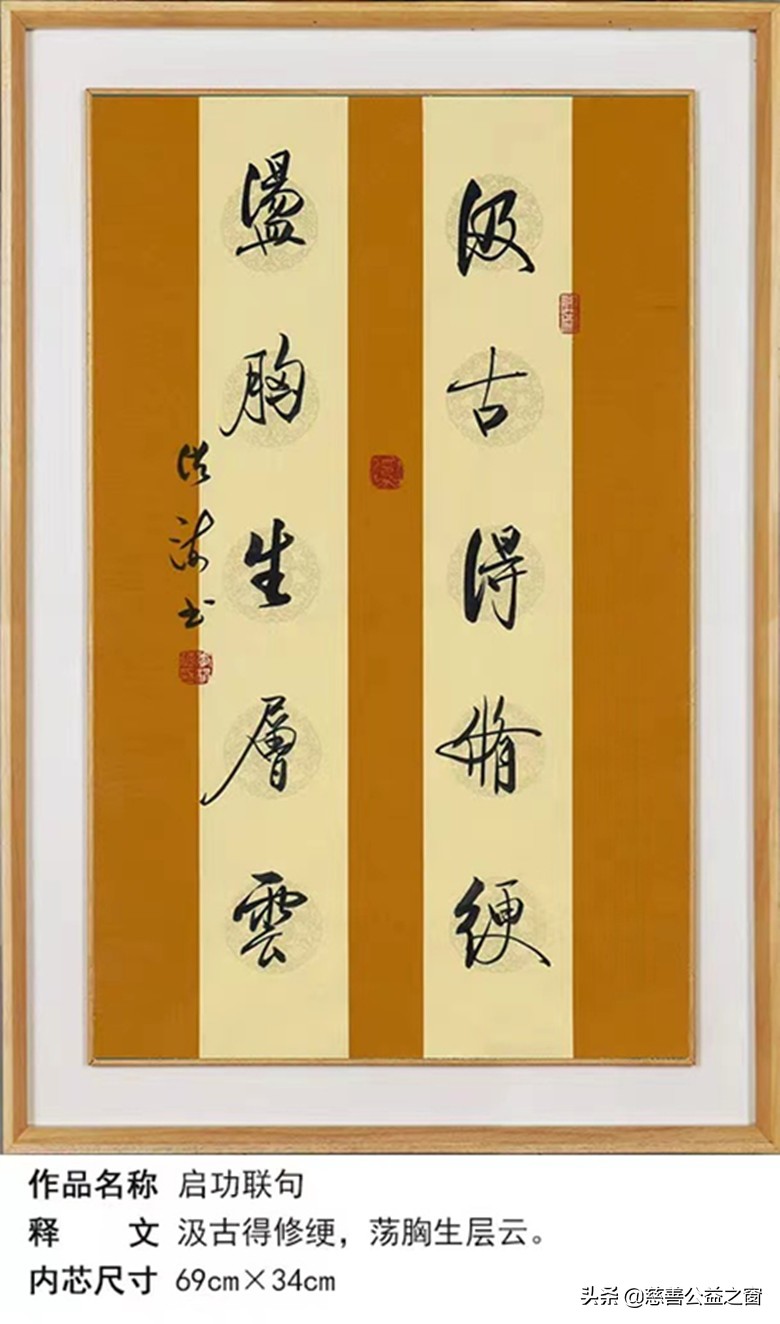 汲古得脩綆
盪胸生層雲
洪海书
作品名称 启功联句
释 文 汲古得修绠，荡胸生层云。
内芯尺寸 69cm×34cm
头条 @慈善公益之窗